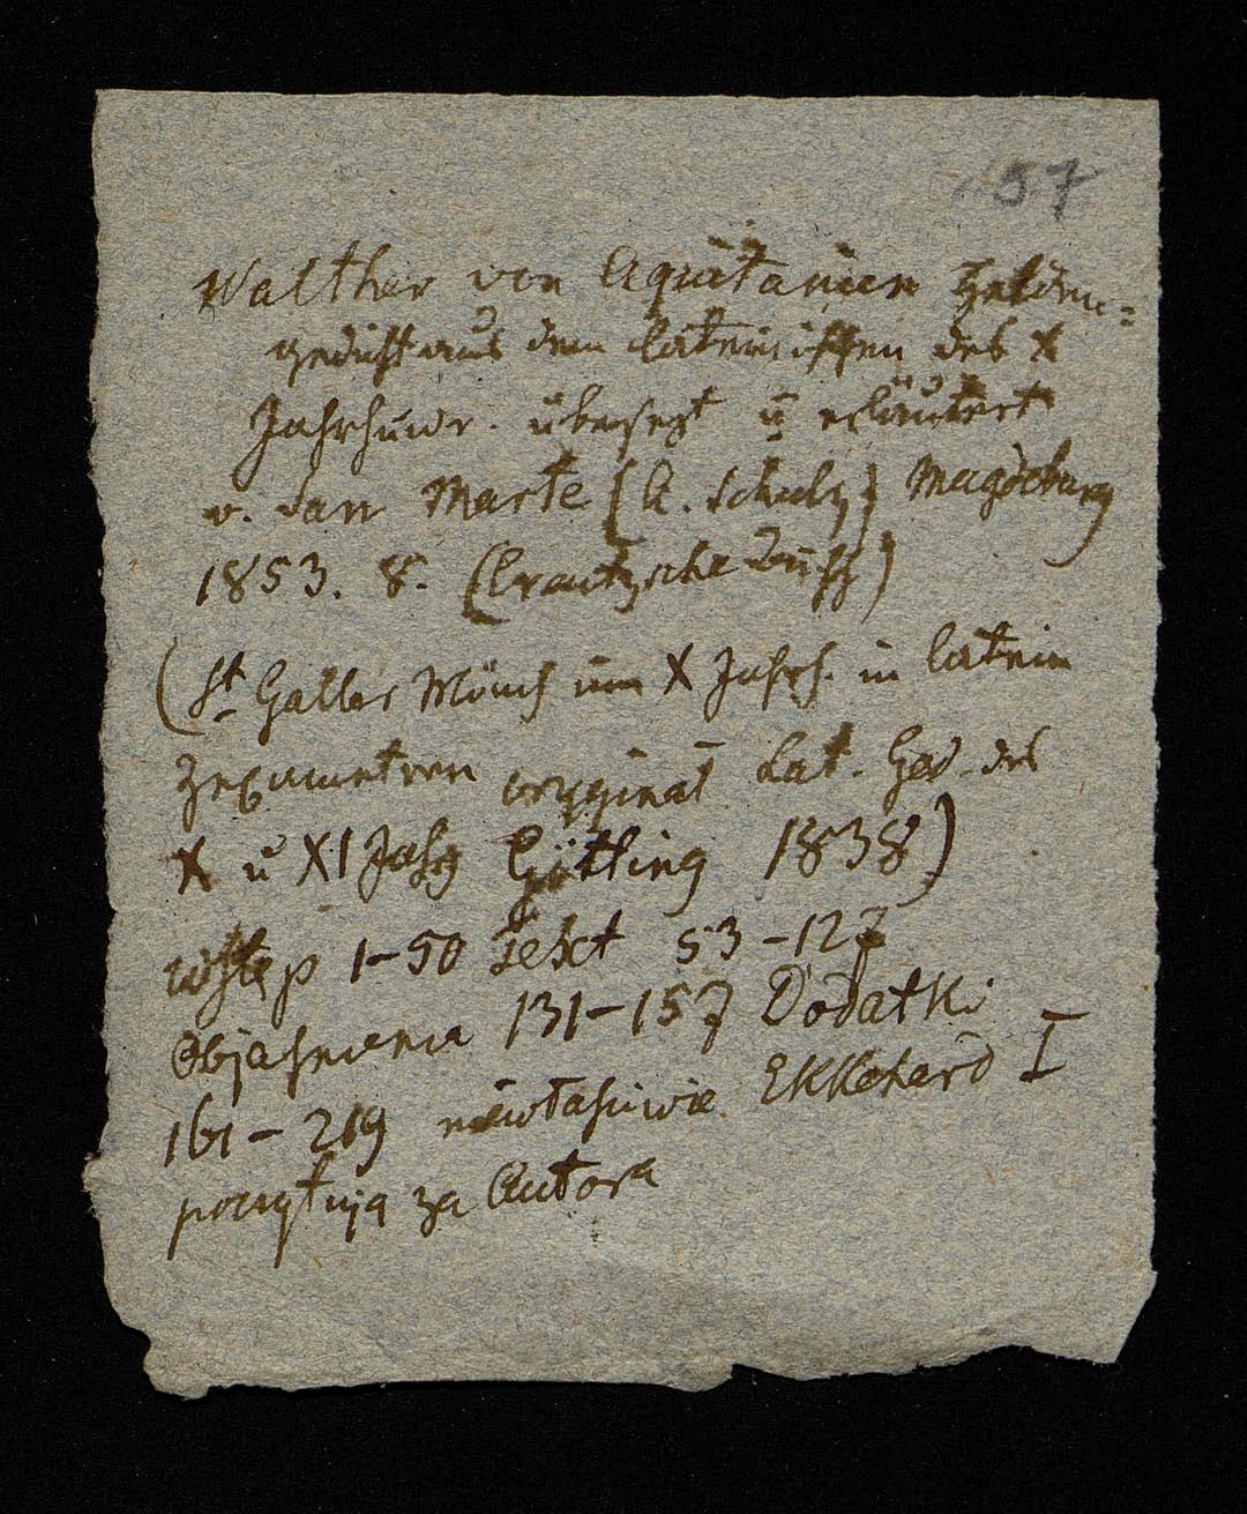 57
Walther von Aquitanien Helden=
gedicht aus dem lateinischen des X
Jahrhund. übersezt u erläutert
v. San Marte (A. Schulz) Magdeburg
1853. 8. (Creutzsche Buch)
(St Galler Mönch im X Jahrh. in latein
Hexametren oryginał Lat. Ged. des
X u XI Jahr Götting 1838)
wstęp 1-50 Text 53-127
Objaśnienia 131-157 Dodatki
161-219 niewłaściwie Ekkehard I
poczytują za Autora